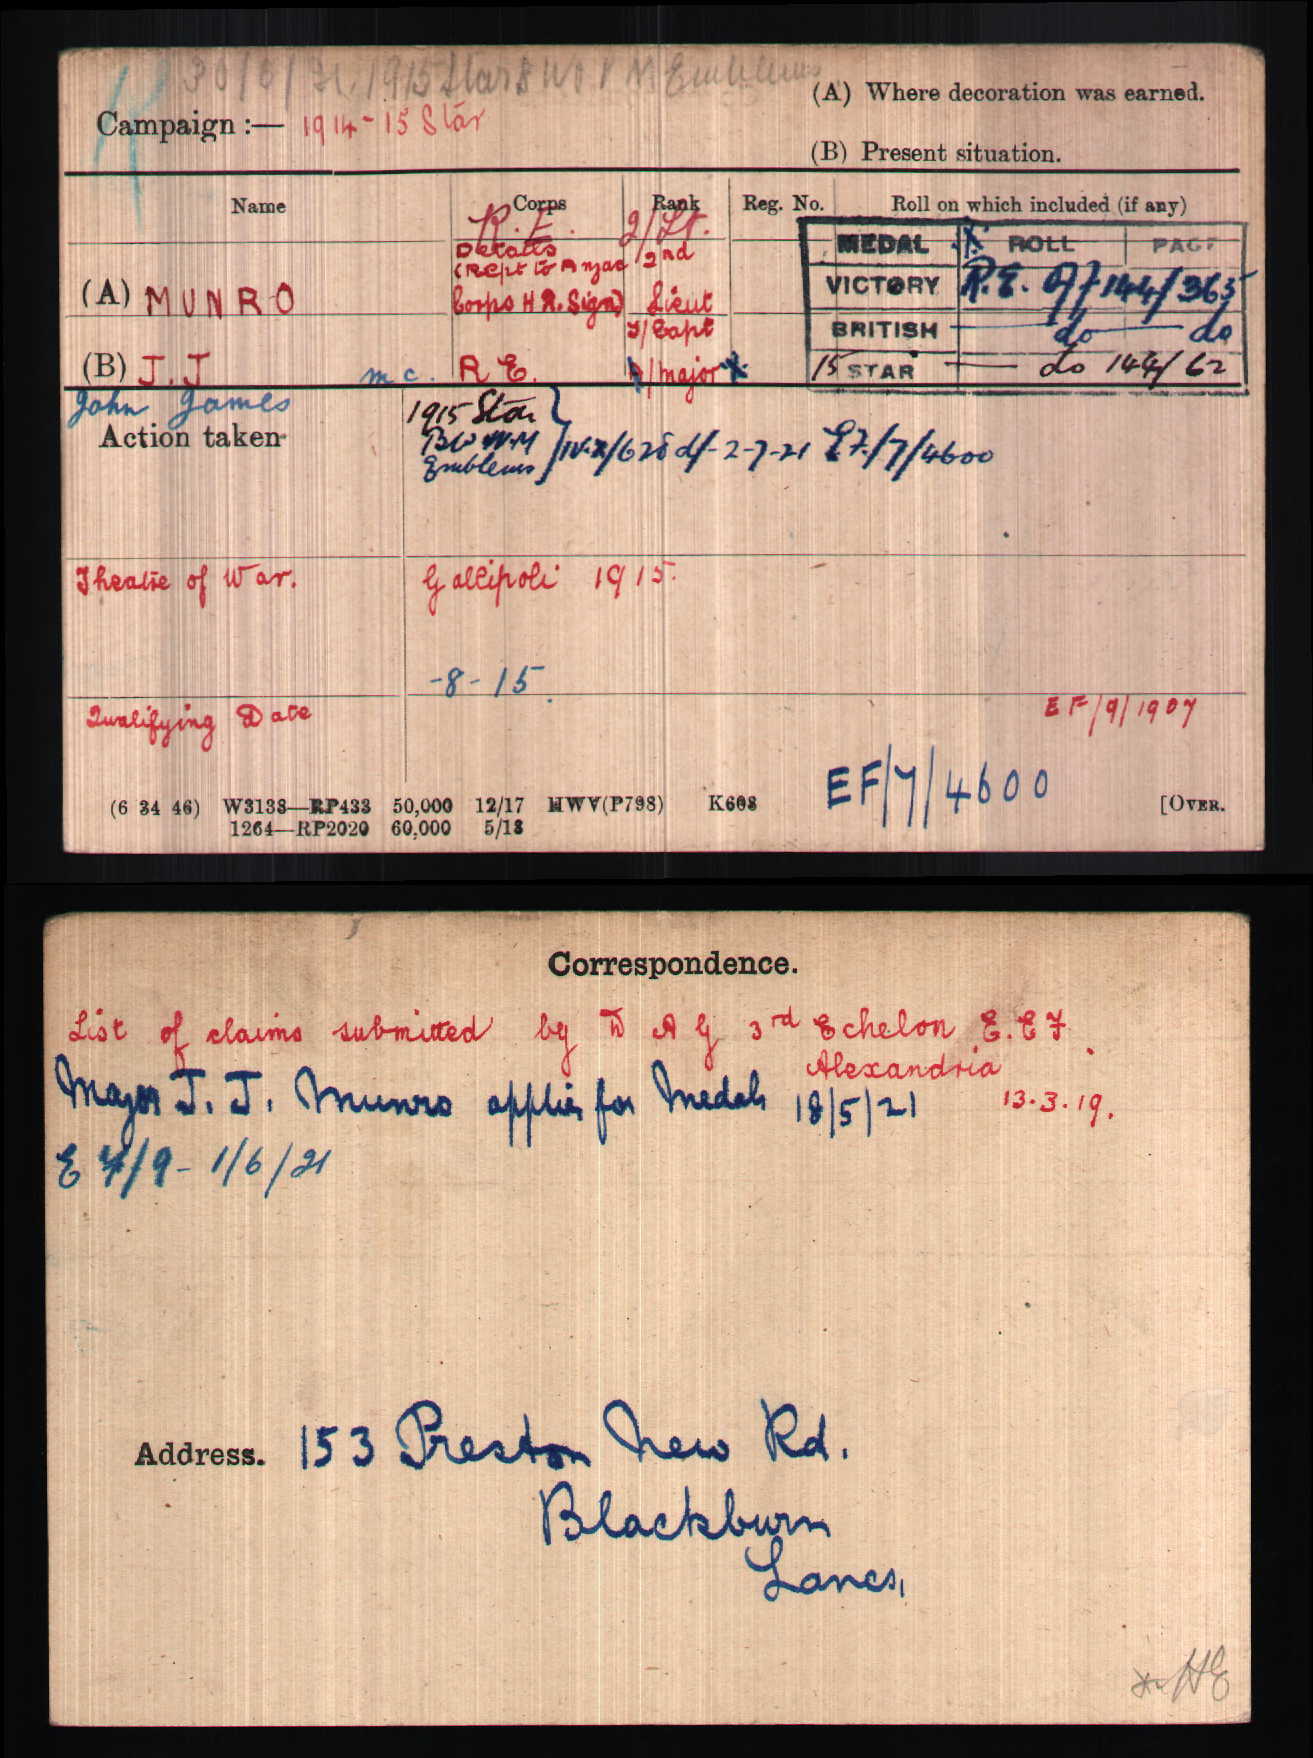 30/6/21. 1915 Star & W & V M. Emblems
Campaign :— 1914-15 Star
(A) Where decoration was earned.
(B) Present situation.
Name Corps Rank Reg. No. Roll on which included (if any)
R.E. 2/Lt.
Details 2nd
(Rept to Anzac
(A) MUNRO Corps H.Q. Sigs) Lieut
T/Capt
(B) J.J M C. R E. A/Major X
MEDAL X ROLL PAGE
VICTORY R.E. Off 144/365
BRITISH — do — do
15 STAR — do 144/62
John James
Action taken
1915 Star
BW VM
Emblems
IV.X/628 d/- 2-7-21 EF/7/4600
Theatre of War. Gallipoli 1915.
-8-15
Qualifying Date EF/9/1907
EF/7/4600
(6 34 46) W3138—RP433 50,000 12/17 HWV(P798) K608 [OVER.
1264—RP2020 60,000 5/18
Correspondence.
List of claims submitted by D A G 3rd Echelon E.E.F.
Alexandria
Major J. J. Munro applies for Medals 18/5/21 13.3.19.
E F/9- 1/6/21
Address. 153 Preston New Rd.
Blackburn
Lancs.
HE